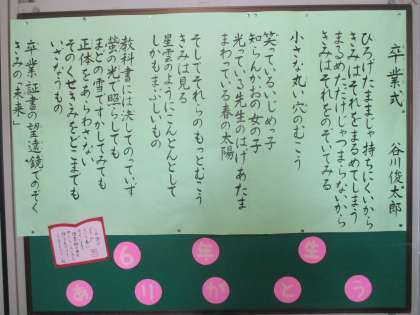 卒業式　谷川俊太郎
ひろげたままじゃ持ちにくいから
きみはそれをまるめてしまう
まるめただけじゃつまらないから
きみはそれをのぞいてみる
小さな丸い穴のむこう
笑っているいじめっ子
知らんかおの女の子
光っている先生のはげあたま
まわっている春の太陽
そしてそれらのもっとむこう
きみは見る
星雲のようにこんとんとして
しかもまぶしいもの
教科書には決してのっていず
蛍の光で照らしても
まどの雪ですかしてみても
正体をあらわさない
そのくせきみをどこまでも
いざなうもの
卒業証書の望遠鏡でのぞく
きみの「未来」
6年生
ありがとう